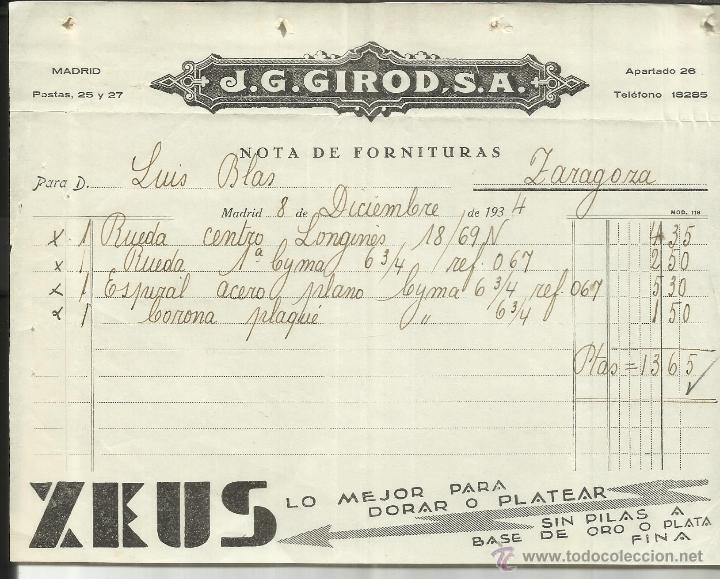 MADRID
Postas, 25 y 27
J. G. GIROD, S. A.
Apartado 26
Teléfono 18285
NOTA DE FORNITURAS
Para D. Luis Blas Zaragoza
Madrid 8 de Diciembre de 1934
MOD. 118
x 1 Rueda centro Longines 18/69 N 4 35
x 1 Rueda 1ª Cyma 6 3/4 ref. 067 2 50
x 1 Espiral acero plano Cyma 6 3/4 ref. 067 5 30
x 1 Corona plaqué " 6 3/4 1 50
Ptas = 13 65
ZEUS
LO MEJOR PARA
DORAR O PLATEAR
SIN PILAS A
BASE DE ORO O PLATA
FINA
www.todocoleccion.net